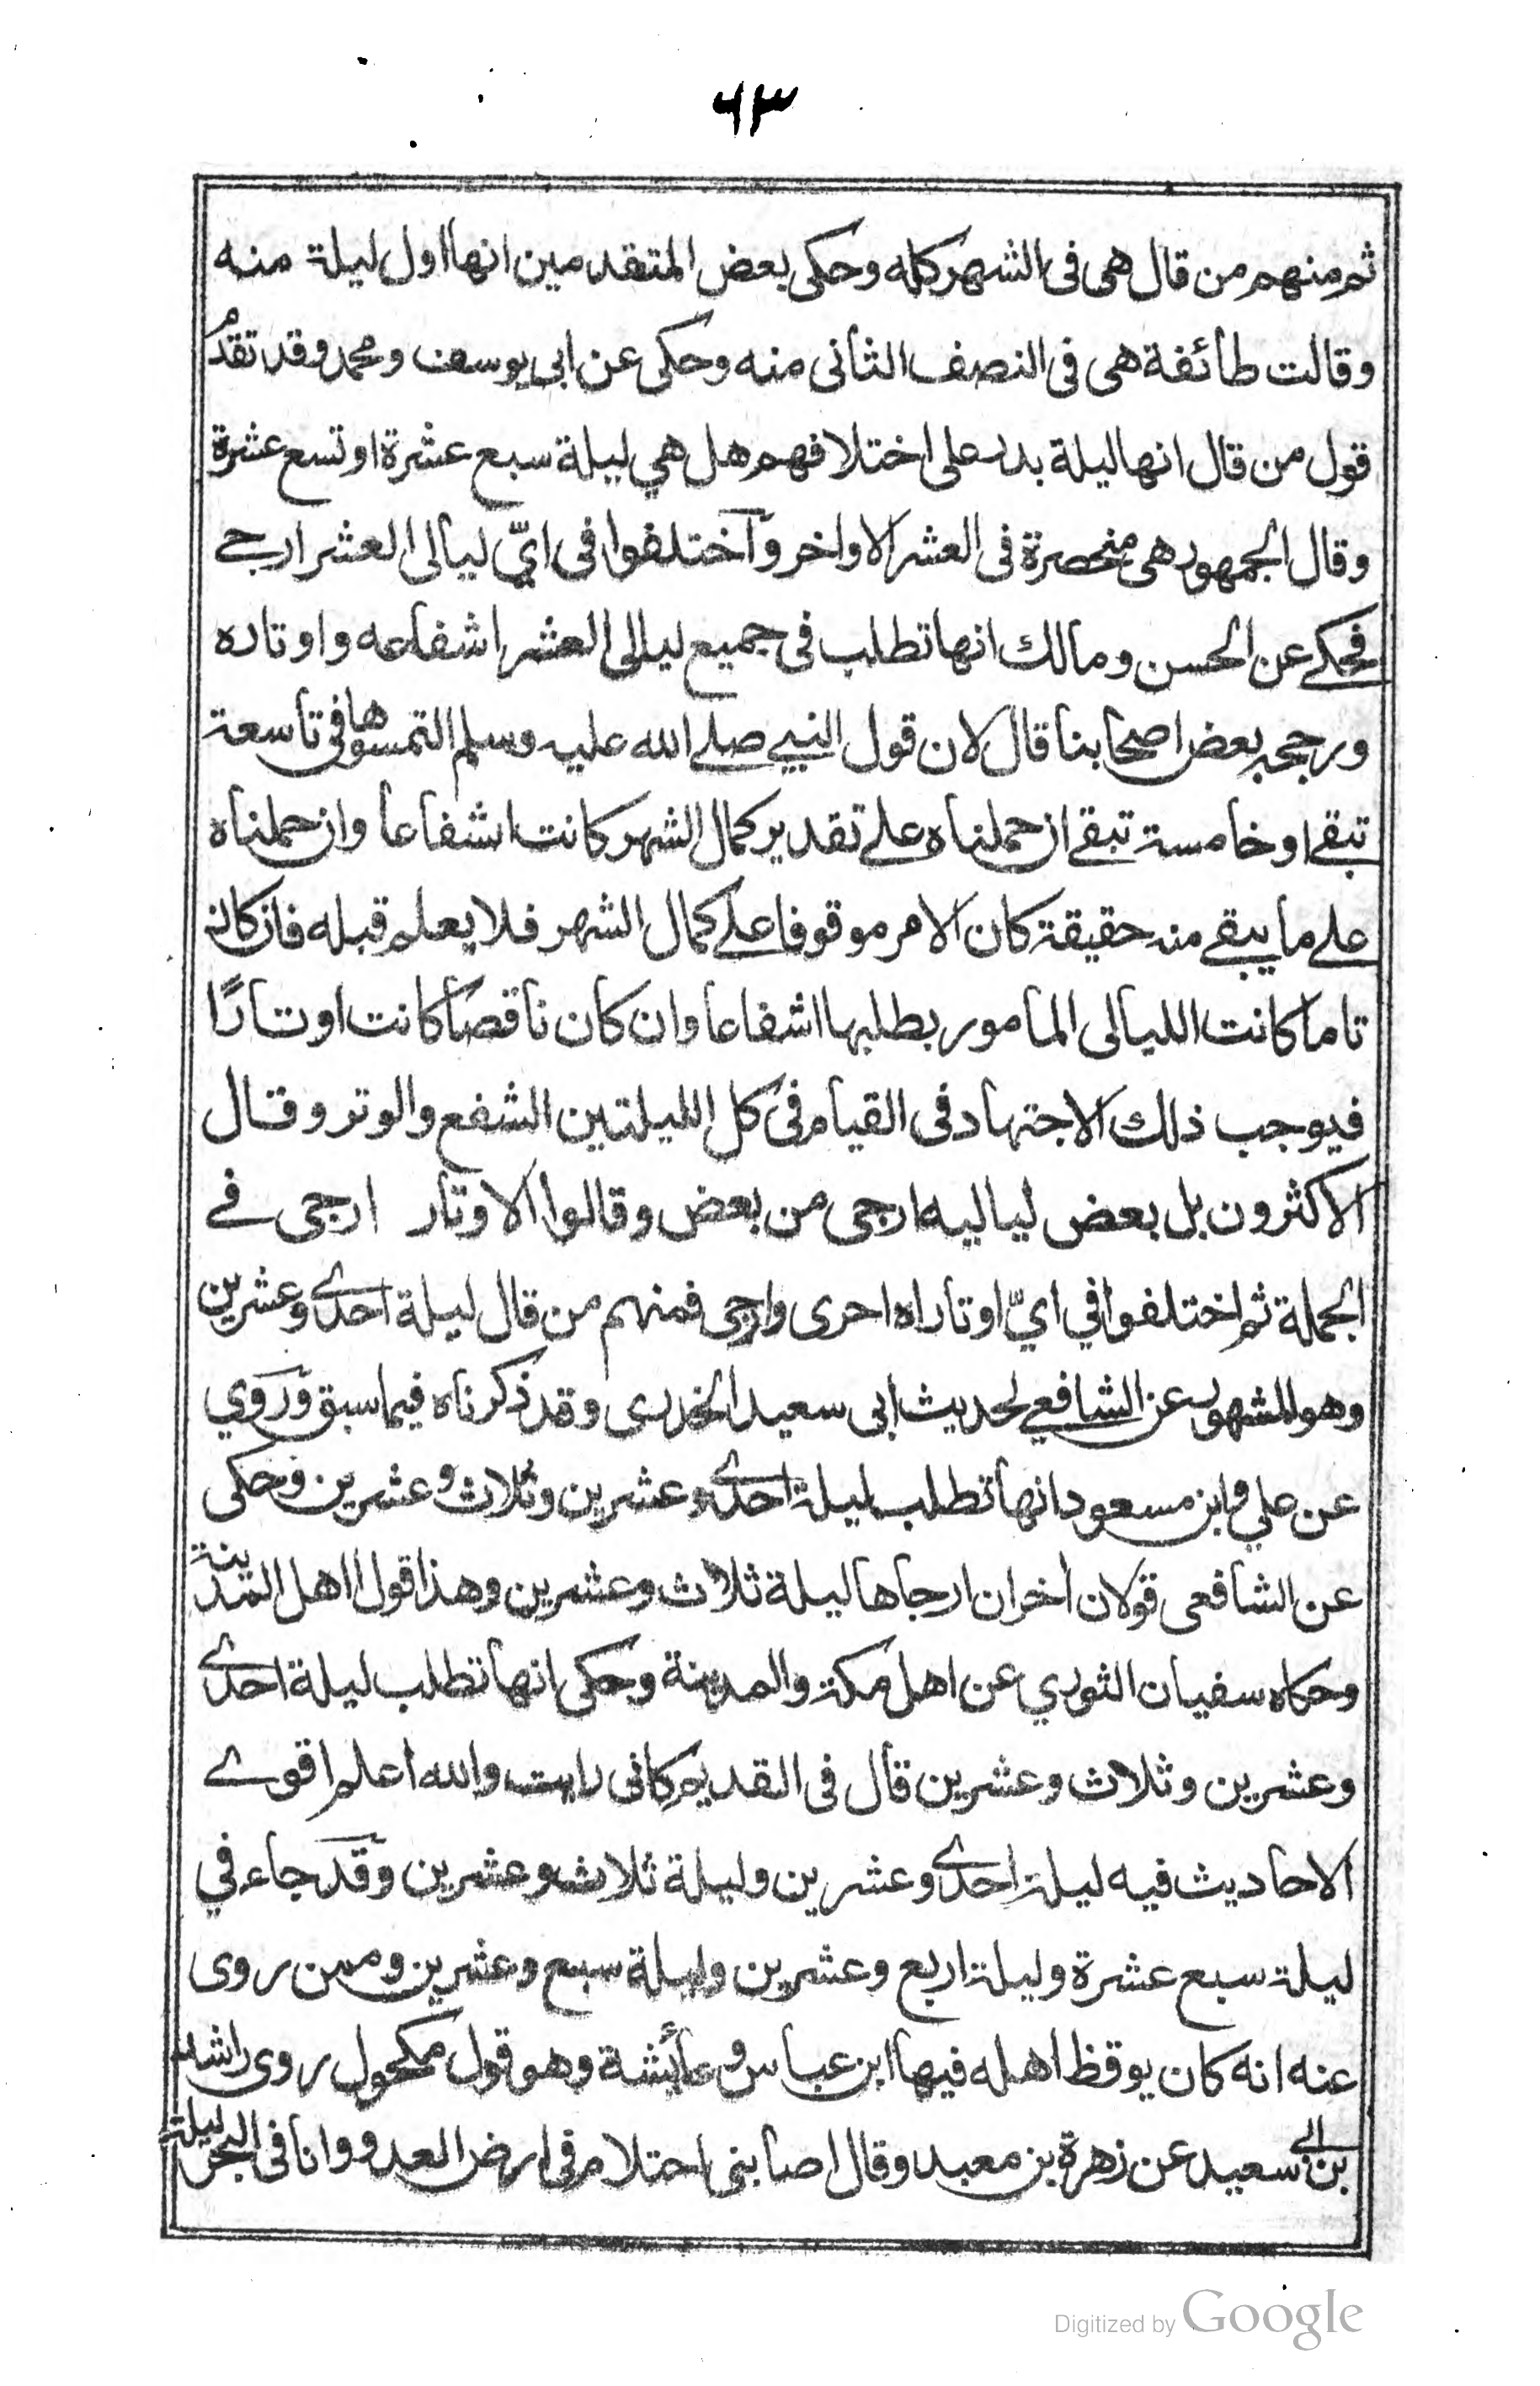 ٦٣
ثم منهم من قال هى فى الشهر كله وحكى بعض المتقدمين انها اول ليلة منه
وقالت طائفة هى فى النصف الثانى منه وحكى عن ابى يوسف ومحمد وقد تقدم
قول من قال انها ليلة بدر على اختلافهم هل هي ليلة سبع عشرة او تسع عشرة
وقال الجمهور هى منحصرة فى العشر الاواخر واختلفوا فى ايّ ليالى العشر ارجے
فحكے عن الحسن ومالك انها تطلب فى جميع ليالى العشر اشفاعه واوتاره
ورجحه بعض اصحابنا قال لان قول النبے صلے الله عليه وسلم التمسوها فى تاسعة
تبقے او خامسة تبقے ان حملناه علے تقدير كمال الشهر كانت اشفاعا وان حملناه
علے ما يبقے منه حقيقة كان الامر موقوفا علے كمال الشهر فلا يعلم قبله فان كان
تاما كانت الليالى المامور بطلبها اشفاعا وان كان ناقصا كانت اوتارًا
فيوجب ذلك الاجتهاد فى القيام فى كل الليلتين الشفع والوتر وقال
الاكثرون بل بعض لياليه ارجى من بعض وقالوا الاوتار ارجى فے
الجملة ثم اختلفوا في ايّ اوتاراه احرى وارجى فمنهم من قال ليلة احدے وعشرين
وهو المشهور عن الشافعے لحديث ابى سعيد الخدرى وقد ذكرناه فيما سبق وروي
عن علي وابن مسعود انها تطلب ليلة احدے وعشرين وثلاث وعشرين وحكى
عن الشافعى قولان أخران ارجاها ليلة ثلاث وعشرين وهذا قول اهل المدينة
وحكاه سفيان الثوري عن اهل مكة والمدينة وحكى انها تطلب ليلة احدے
وعشرين وثلاث وعشرين قال فى القديم كانى رايت والله اعلم اقوے
الاحاديث فيه ليلة احدے وعشرين وليلة ثلاث وعشرين وقد جاء في
ليلة سبع عشرة وليلة اربع وعشرين وليلة سبع وعشرين وممن روى
عنه انه كان يوقظ اهله فيها ابن عباس وعائشة وهو قول مكحول روى راشد
بن ابے سعيد عن زهرة بن معبد وقال اصابنى احتلام فى ارض العدو وانا فى البحر ليلة
Digitized by Google